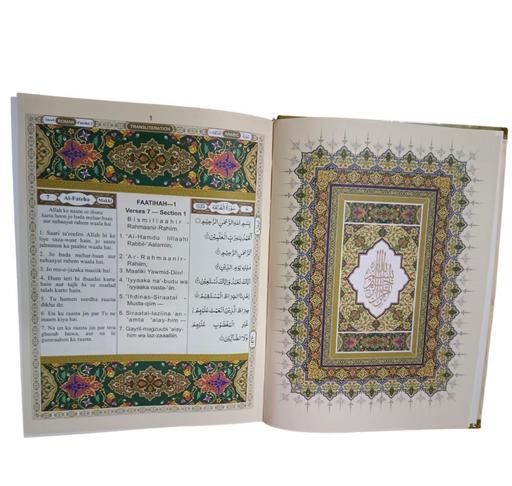 1
ROMAN
TRANSLITERATION
ARABIC
7 Al-Fateha Makki
Allah ke naam se ibtata
karta hoon jo bada mehar-baan
aur nehaayat rahem waala hai.
1. Saari ta'reefen Allah hi ke
liye saza-waar hain, jo saare
jahaanon ka paalne waala hai.
2. Jo bada mehar-baan
aur nehaayat rahem waala hai.
3. Jo roz-e-jazaa ka maalik hai.
4. Ham teri hi ibaadat karte
hain aur tujh hi se madad
talab karte hain.
5. Tu hamen seedha raasta
dikha de.
6. Un ka raasta jin par Tu ne
inaam kiya hai.
7. Na un ka raasta jin par tera
ghazab huwa, aur na to
gumraahon ka raasta.
FAATIHAH—1
Verses 7 — Section 1
Bismillaahir
Rahmaanir-Rahiim.
1. 'Al-Hamdu lillaahi
Rabbil-'Aalamiin;
2. 'Ar-Rahmaanir-
Rahiim;
3. Maaliki Yawmid-Diin!
4. 'Iyyaaka na'-budu wa
'iyyaaka nasta-'iin.
5. 'Ihdinas-Siraatal-
Mustaqiim —
6. Siraatal-laziina 'an-
'amta 'alay-him —
7. Gayril-magzuubi 'alay-
him wa laz-zaaalliin.
سورة الفاتحة
بسم الله الرحمن الرحيم
الحمد لله رب العلمين
الرحمن الرحيم
ملك يوم الدين
اياك نعبد واياك نستعين
اهدنا الصراط المستقيم
صراط الذين انعمت عليهم
غير المغضوب عليهم
ولا الضالين